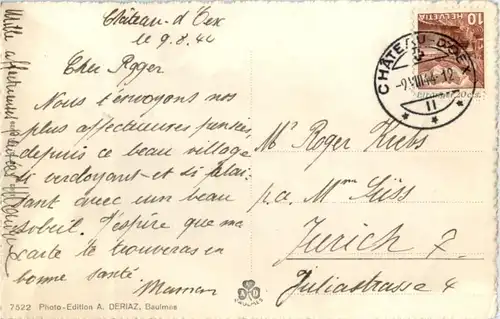 Château-d'Oex
le 9.8.44
Cher Roger
Nous t'envoyons nos
plus affectueuses pensées,
depuis ce beau village
si verdoyant et si plai-
sant avec un beau
soleil. J'espère que ma
carte te trouveras en
bonne santé
Maman
Mille affectueuses
Mr Roger Krebs
p.a. Mme Süss
Zurich 7.
Juliastrasse 4
HELVETIA 10
CHÂTEAU-D'OEX
VIII 44 12
7522 Photo-Edition A. DERIAZ, Baulmes